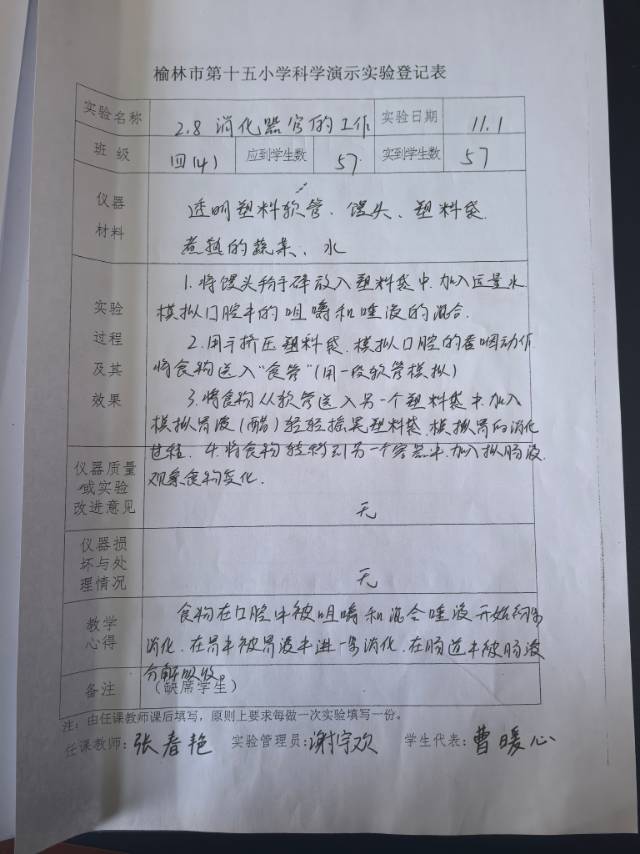 榆林市第十五小学科学演示实验登记表
实验名称 2.8 消化器官的工作 实验日期 11.1
班级 四(4) 应到学生数 57 实到学生数 57
仪器材料 透明塑料软管、馒头、塑料袋
煮熟的蔬菜、水
实验过程及其效果 1.将馒头 碎放入塑料袋中.加入适量水
模拟口腔中的咀嚼和唾液的混合.
2.用手挤压塑料袋.模拟口腔的吞咽动作
将食物送入“食管”(用一段软管模拟)
3.将食物从软管送入另一个塑料袋中.加入
模拟胃液(醋)轻轻揉晃塑料袋.模拟胃的消化
过程. 4.将食物转移到另一个容器中.加入拟肠液.
观察食物变化.
仪器质量或实验改进意见 无
仪器损坏与处理情况 无
教学心得 食物在口腔中被咀嚼和混合唾液开始初步
消化.在胃中被胃液中进一步消化.在肠道中被肠液
分解吸收。
备注 (缺席学生)
注：由任课教师课后填写，原则上要求每做一次实验填写一份。
任课教师：张春艳 实验管理员：谢宇欢 学生代表：曹暖心